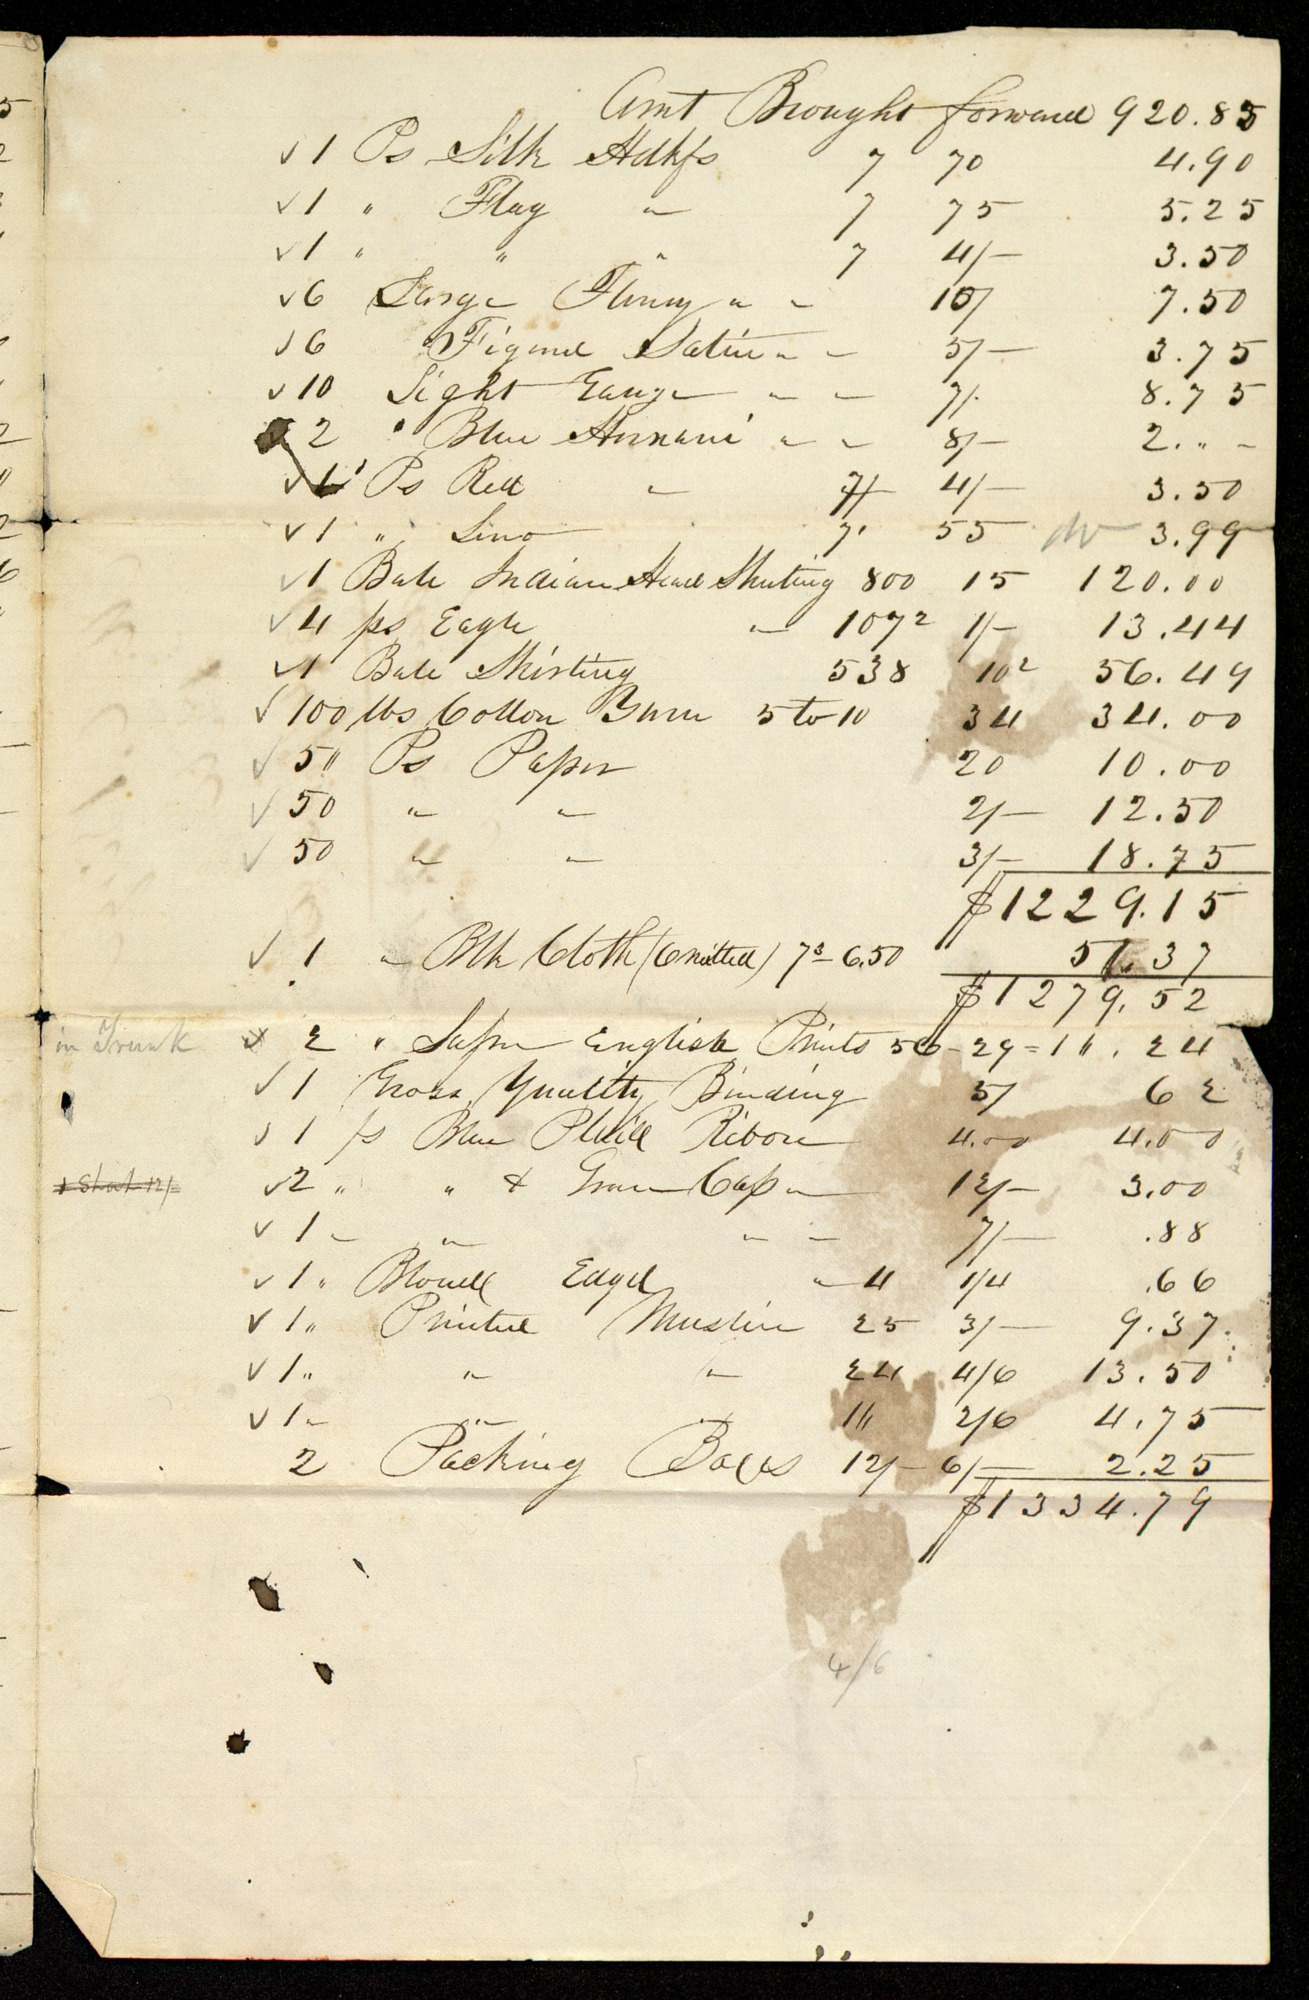 Amt Brought forward 920.85
√ 1 Ps Silk Hdkfs 7 70 4.90
√ 1 " Flag " 7 75 5.25
√ 1 " " " 7 4/- 3.50
√ 6 Large " " 10/ 7.50
√ 6 Figured Satin " " 5/- 3.75
√ 10 Light Gauze " " 7/- 8.75
2 " Blue " " 8/- 2. " -
√ 1 Ps Red " 7/- 4/- 3.50
√ 1 " Lino 7 " 55 3.99
√ 1 Bale Indian Head Sheeting 800 15 120.00
√ 4 ps Eagle " 107² 1/- 13.44
√ 1 Bale Shirting 538 10² 56.49
√ 100 lbs Cotton Yarn 5 to 10 34 34.00
√ 50 Ps Paper 20 10.00
√ 50 " " 2/- 12.50
√ 50 " " 3/- 18.75
$1229.15
√ 1 " Blk Cloth (Omitted) 7³ 6.50 51.37
$1279.52
in Trunk x 2 " Super English Prints 56 - 29 = 16.24
√ 1 Gross Quality Binding 5/ 62
√ 1 ps Blue Plaid Ribon 4.00 4.00
1 Shat 12/- √ 2 " " & Green Cap " 12/- 3.00
√ 1 " " " " 7/- .88
√ 1 " Edged " 4 1/4 .66
√ 1 " Printed Muslin 25 3/- 9.37
√ 1 " " " 24 4/6 13.50
√ 1 " " 2/6 4.75
2 Packing Boxes 12/- 6/- 2.25
$1334.79
4/6